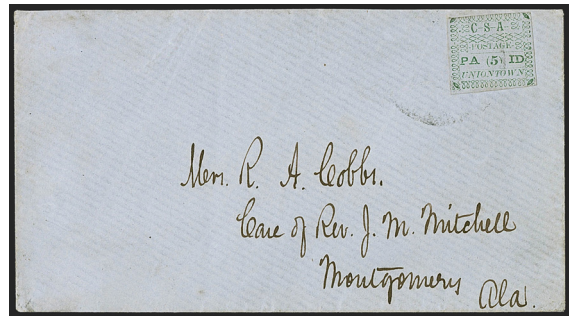 C·S·A·
POSTAGE
PA (5) ID
UNIONTOWN
Mrs. R. A. Cobbs.
Care of Rev. J. M. Mitchell
Montgomery
Ala.